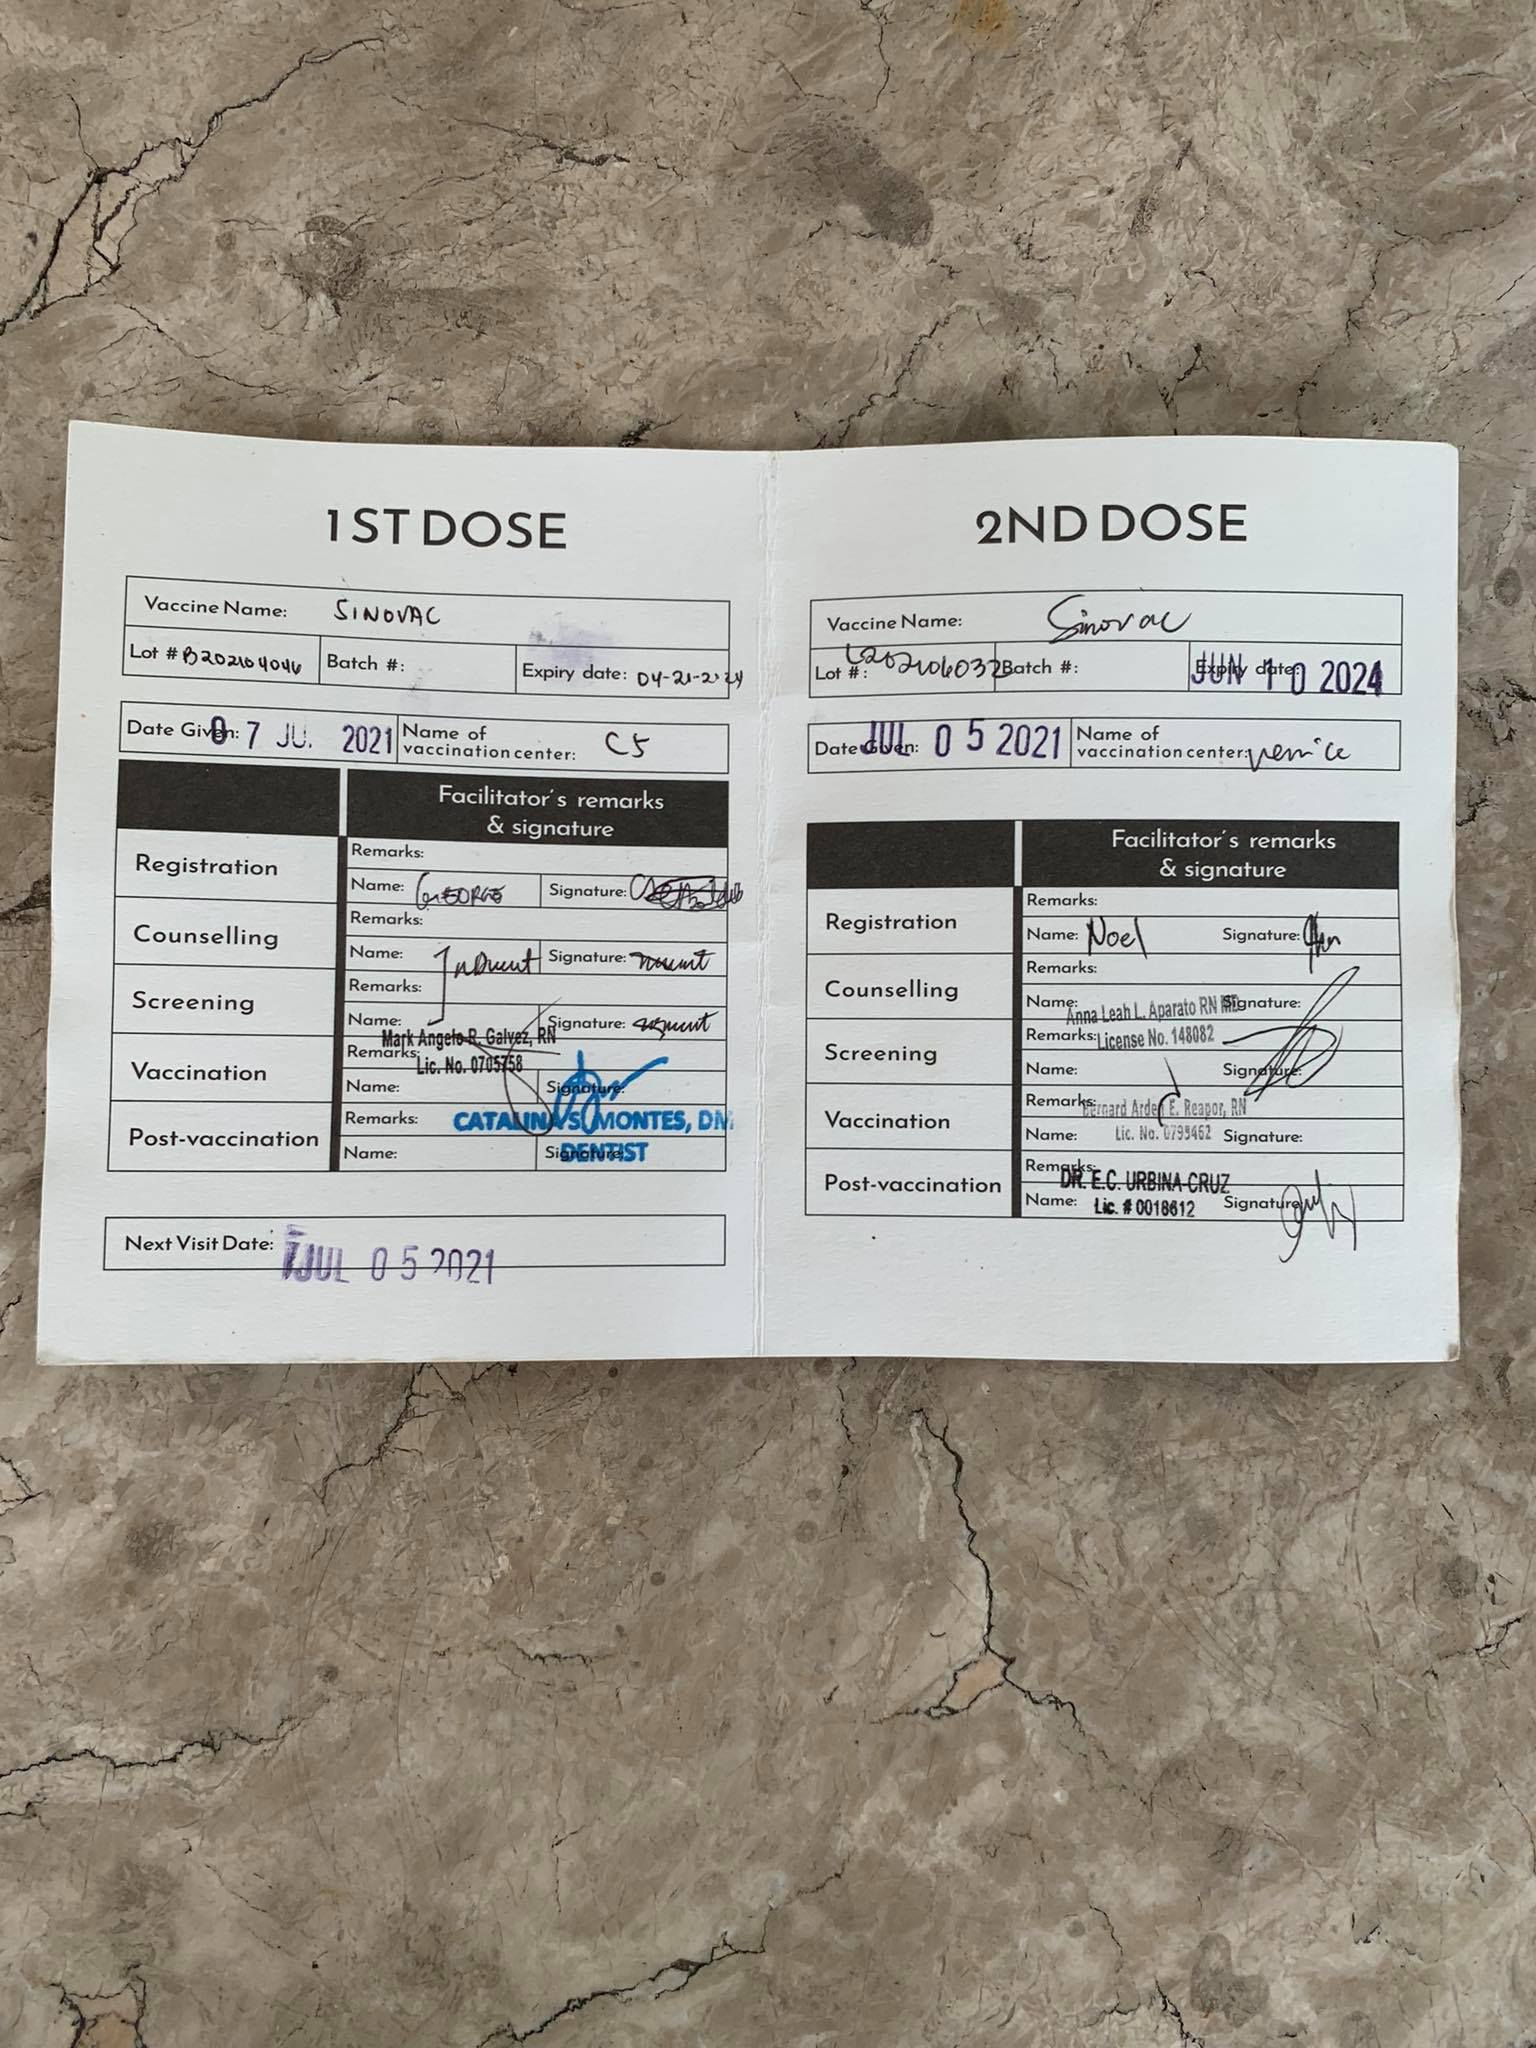 1ST DOSE
Vaccine Name: SINOVAC
Lot # B202104046 Batch #: Expiry date: 04-21-2024
Date Given: 07 JU. 2021 Name of vaccination center: C5
Facilitator's remarks
& signature
Registration
Remarks:
Name: GEORGE Signature:
Counselling
Remarks:
Name: Signature:
Screening
Remarks:
Name: Signature:
Mark Angelo R. Galvez, RN
Lic. No. 0705758
Vaccination
Remarks:
Name: Signature:
CATALINA S. MONTES, DM
DENTIST
Post-vaccination
Remarks:
Name: Signature:
Next Visit Date: JUL 05 2021
2ND DOSE
Vaccine Name: Sinovac
Lot #: Batch #: Expiry date: JUN 10 2024
Date Given: JUL 05 2021 Name of vaccination center: venice
Facilitator's remarks
& signature
Registration
Remarks:
Name: Noel Signature:
Counselling
Remarks:
Name: Signature:
Anna Leah L. Aparato RN MD
License No. 148082
Screening
Remarks:
Name: Signature:
Vaccination
Remarks:
Bernard Arden E. Reapor, RN
Lic. No. 0799462
Name: Signature:
Post-vaccination
Remarks:
DR. E.C. URBINA-CRUZ
Lic. # 0018612
Name: Signature: